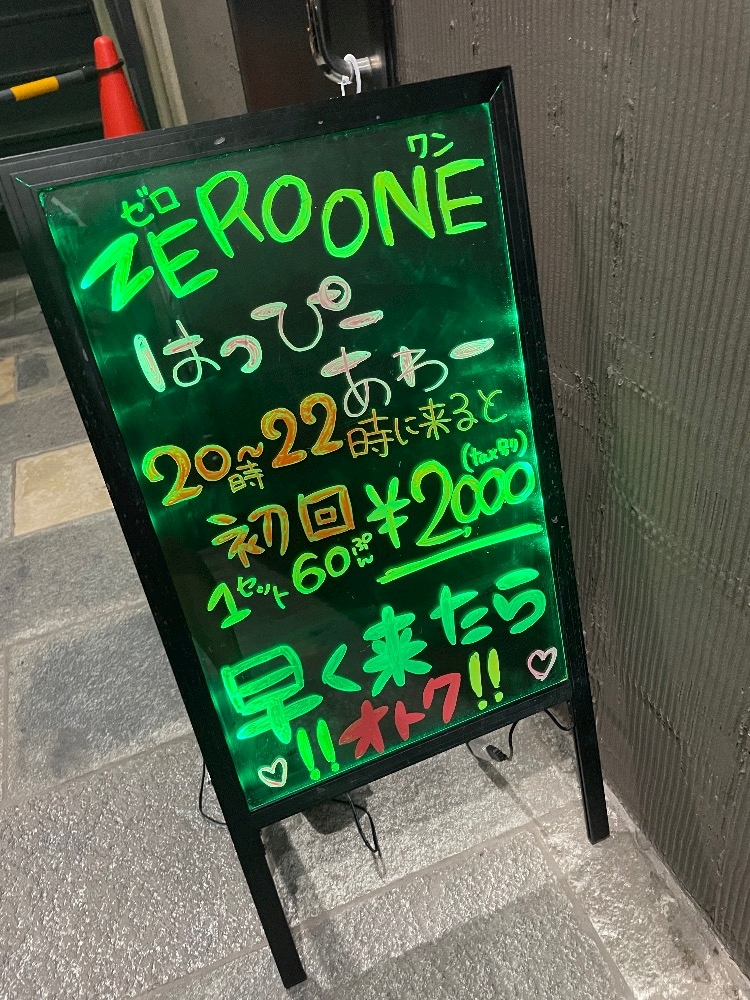 ゼロ ワン
ZERO ONE
はっぴー
あわー
20時~22時に来ると
初回 ¥2,000 (tax別)
1セット60ぷん
早く来たら
!!オトク!!